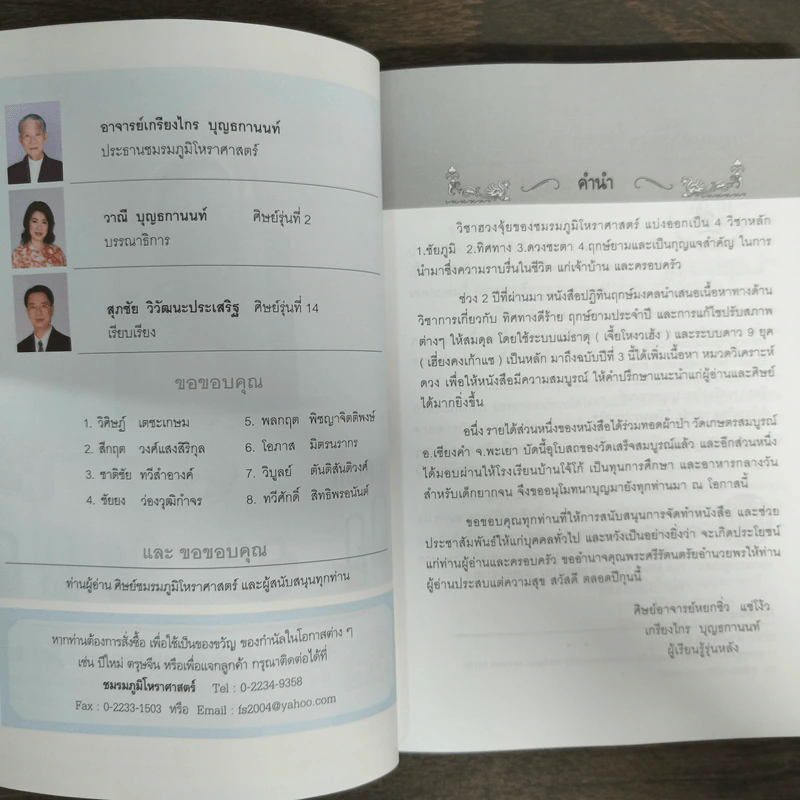 อาจารย์เกรียงไกร บุญธกานนท์
ประธานชมรมภูมิโหราศาสตร์
วาณี บุญธกานนท์ ศิษย์รุ่นที่ 2
บรรณาธิการ
สุภชัย วิวัฒนะประเสริฐ ศิษย์รุ่นที่ 14
เรียบเรียง
ขอขอบคุณ
1. วิศิษฎ์ เตชะเกษม 5. พลกฤต พิชญาจิตติพงษ์
2. สึกฤต วงศ์แสงสิริกุล 6. โอภาส มิตรนรากร
3. ชาติชัย ทวีสำอางค์ 7. วิบูลย์ ตันติสันติวงศ์
4. ชัยยง ว่องวุฒิกำจร 8. ทวีศักดิ์ สิทธิพรอนันต์
และ ขอขอบคุณ
ท่านผู้อ่าน ศิษย์ชมรมภูมิโหราศาสตร์ และผู้สนับสนุนทุกท่าน
หากท่านต้องการสั่งซื้อ เพื่อใช้เป็นของขวัญ ของกำนัลในโอกาสต่าง ๆ
เช่น ปีใหม่ ตรุษจีน หรือเพื่อแจกลูกค้า กรุณาติดต่อได้ที่
ชมรมภูมิโหราศาสตร์ Tel : 0-2234-9358
Fax : 0-2233-1503 หรือ Email : fs2004@yahoo.com
คำนำ
วิชาฮวงจุ้ยของชมรมภูมิโหราศาสตร์ แบ่งออกเป็น 4 วิชาหลัก
1.ชัยภูมิ 2.ทิศทาง 3.ดวงชะตา 4.ฤกษ์ยามและเป็นกุญแจสำคัญ ในการ
นำมาซึ่งความราบรื่นในชีวิต แก่เจ้าบ้าน และครอบครัว
ช่วง 2 ปีที่ผ่านมา หนังสือปฏิทินฤกษ์มงคลนำเสนอเนื้อหาทางด้าน
วิชาการเกี่ยวกับ ทิศทางดีร้าย ฤกษ์ยามประจำปี และการแก้ไขปรับสภาพ
ต่างๆ ให้สมดุล โดยใช้ระบบแม่ธาตุ ( เจี้ยโหงวเฮ้ง ) และระบบดาว 9 ยุค
( เฮี่ยงคงเก้าแช ) เป็นหลัก มาถึงฉบับปีที่ 3 นี้ได้เพิ่มเนื้อหา หมวดวิเคราะห์
ดวง เพื่อให้หนังสือมีความสมบูรณ์ ให้คำปรึกษาแนะนำแก่ผู้อ่านและศิษย์
ได้มากยิ่งขึ้น
อนึ่ง รายได้ส่วนหนึ่งของหนังสือได้ร่วมทอดผ้าป่า วัดเกษตรสมบูรณ์
อ.เชียงคำ จ.พะเยา บัดนี้อุโบสถของวัดเสร็จสมบูรณ์แล้ว และอีกส่วนหนึ่ง
ได้มอบผ่านให้โรงเรียนบ้านโจ้โก้ เป็นทุนการศึกษา และอาหารกลางวัน
สำหรับเด็กยากจน จึงขออนุโมทนาบุญมายังทุกท่านมา ณ โอกาสนี้
ขอขอบคุณทุกท่านที่ให้การสนับสนุนการจัดทำหนังสือ และช่วย
ประชาสัมพันธ์ให้แก่บุคคลทั่วไป และหวังเป็นอย่างยิ่งว่า จะเกิดประโยชน์
แก่ท่านผู้อ่านและครอบครัว ขออำนาจคุณพระศรีรัตนตรัยอำนวยพรให้ท่าน
ผู้อ่านประสบแต่ความสุข สวัสดี ตลอดปีกุนนี้
ศิษย์อาจารย์หยกชิ่ว แซ่โง้ว
เกรียงไกร บุญธกานนท์
ผู้เรียนรู้รุ่นหลัง